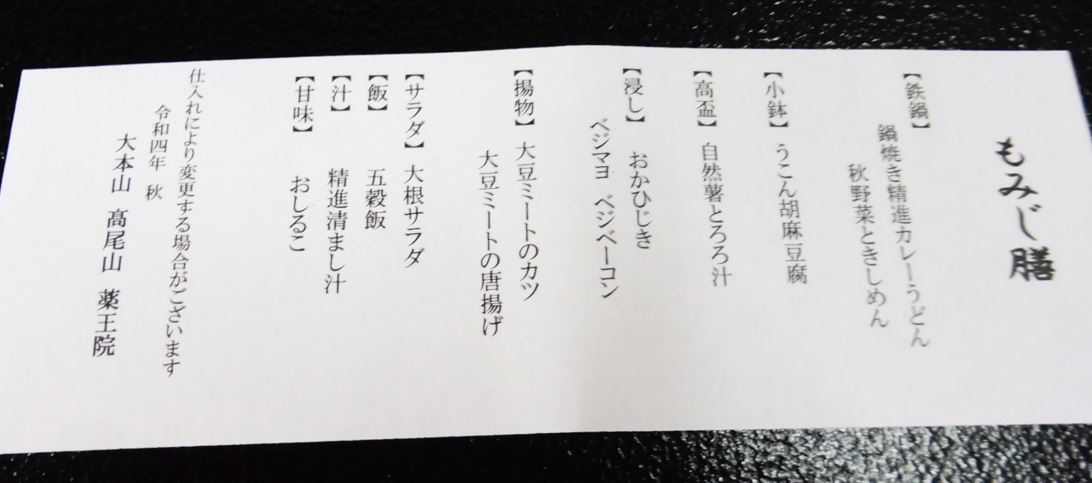 もみじ膳
【鉄鍋】
鍋焼き精進カレーうどん
秋野菜ときしめん
【小鉢】 うこん胡麻豆腐
【高盃】 自然薯とろろ汁
【浸し】 おかひじき
ベジマヨ ベジベーコン
【揚物】 大豆ミートのカツ
大豆ミートの唐揚げ
【サラダ】 大根サラダ
【飯】 五穀飯
【汁】 精進清まし汁
【甘味】 おしるこ
仕入れにより変更する場合がございます
令和四年 秋
大本山 髙尾山 薬王院